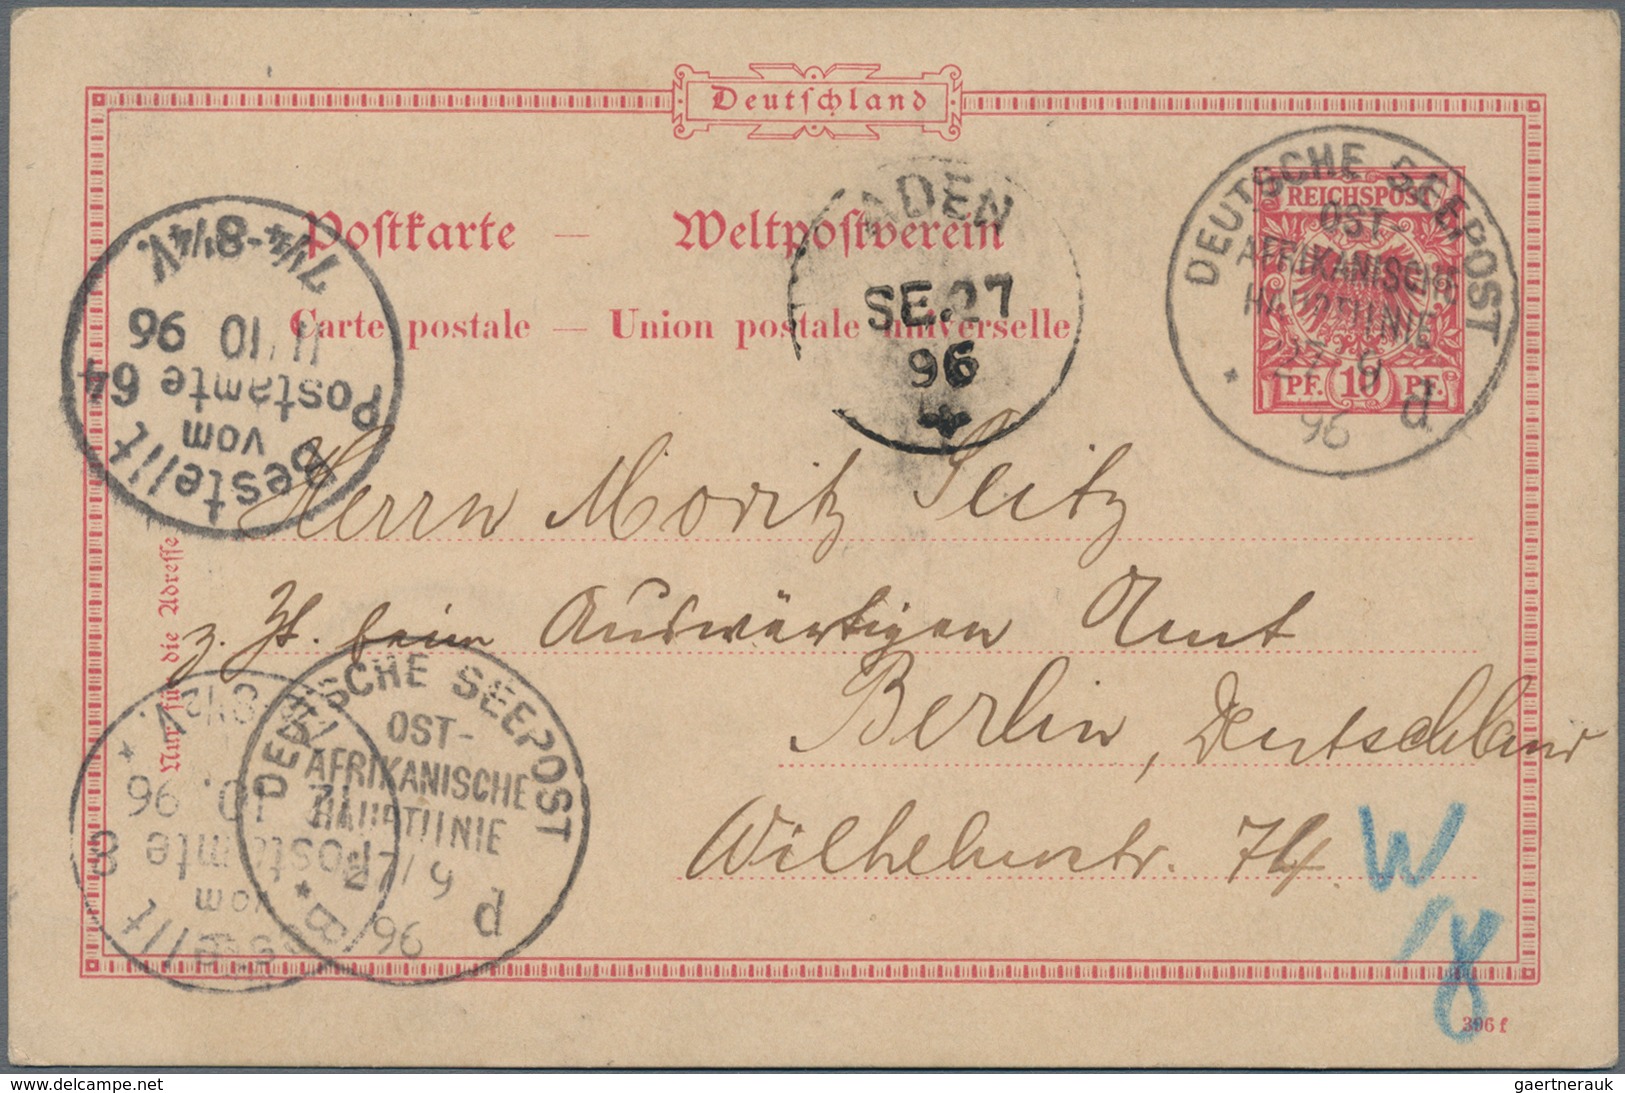 Deutschland
Postkarte — Weltpostverein
Carte postale — Union postale universelle
REICHSPOST
PF. 10 PF.
DEUTSCHE SEEPOST
OST-
AFRIKANISCHE
HAUPTLINIE
27 9
96 d
ADEN
SE.27
96
Bestellt
vom
Postamte 64
11/10 96
7¼-8¼V.
Herrn Moritz Seitz
z. Zt. beim Auswärtigen Amt
Berlin, Deutschland
Wilhelmstr. 74.
Nur für die Adresse
DEUTSCHE SEEPOST
OST-
AFRIKANISCHE
HAUPTLINIE
96 d
Bestellt
vom
Postamte 8
10. 96
8½V.
W
/8
396 f
www.delcampe.net
gaertnerauk